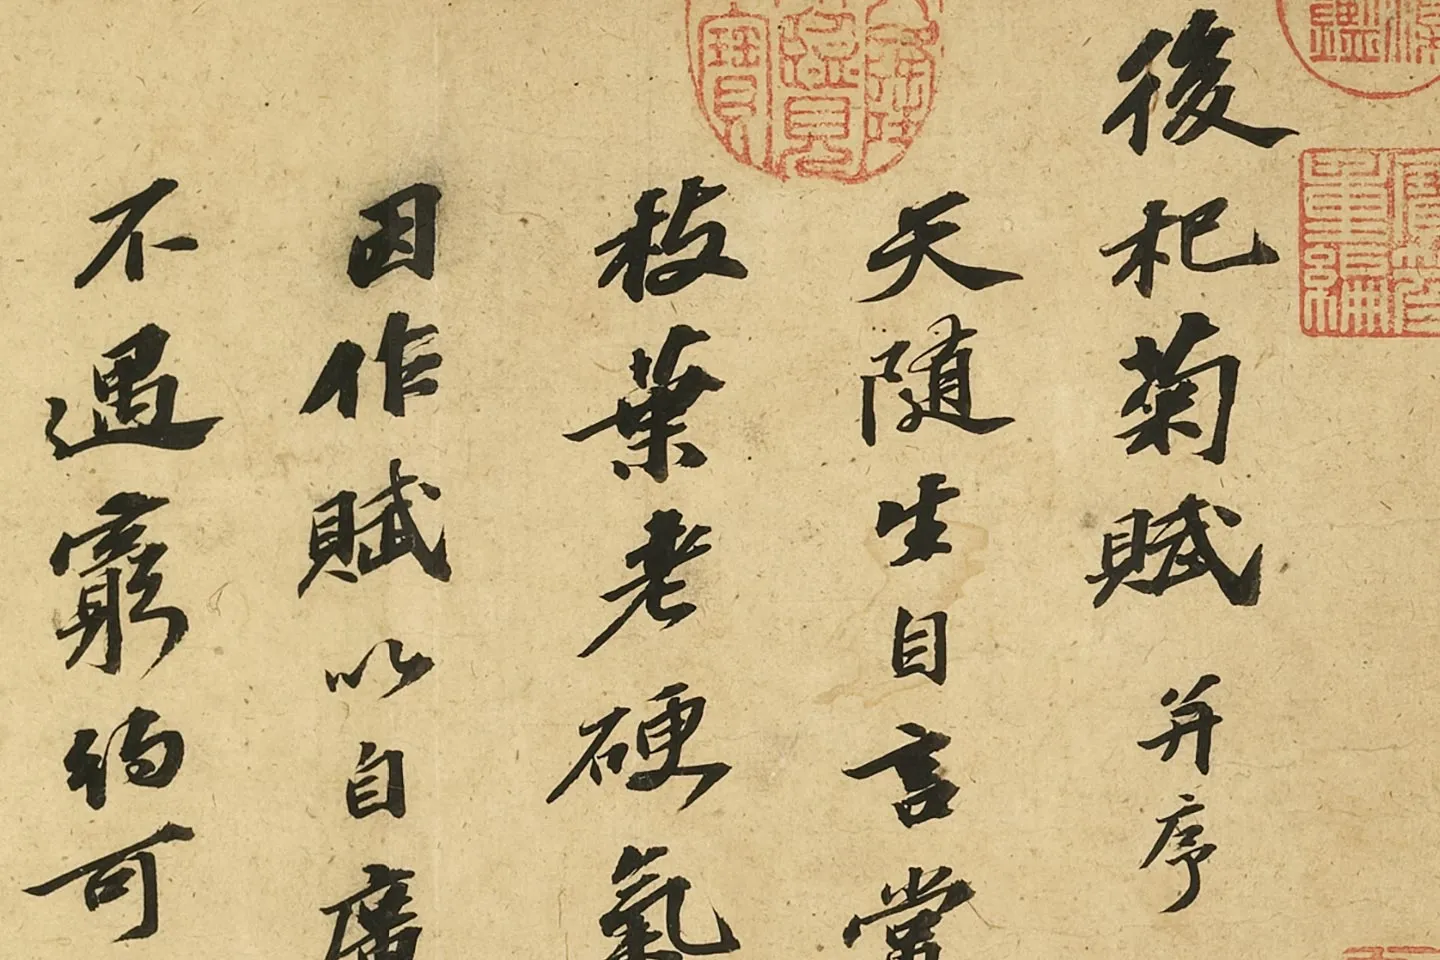 後杞菊賦并序
天随生自言常
枝葉老硬氣
因作賦以自廣
不遇窮約可